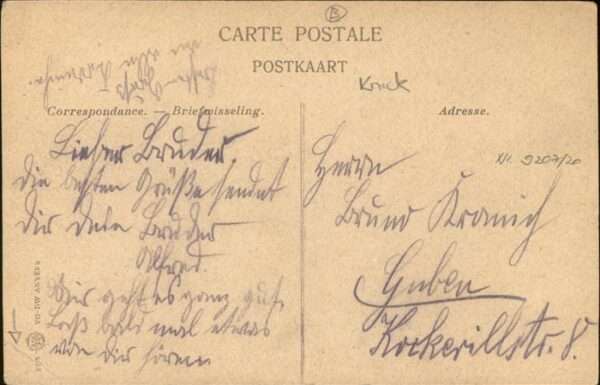 B
CARTE POSTALE
POSTKAART
Krick
Correspondance. — Briefwisseling.
Adresse.
Lieber Bruder,
die besten Grüße sendet
dir dein Bruder
Alfred.
Mir geht es ganz gut,
Laß bald mal etwas
von dir hören
XII. 9207/20
Herrn
Bruno Kranich
Guben
Kockerillstr. 8.